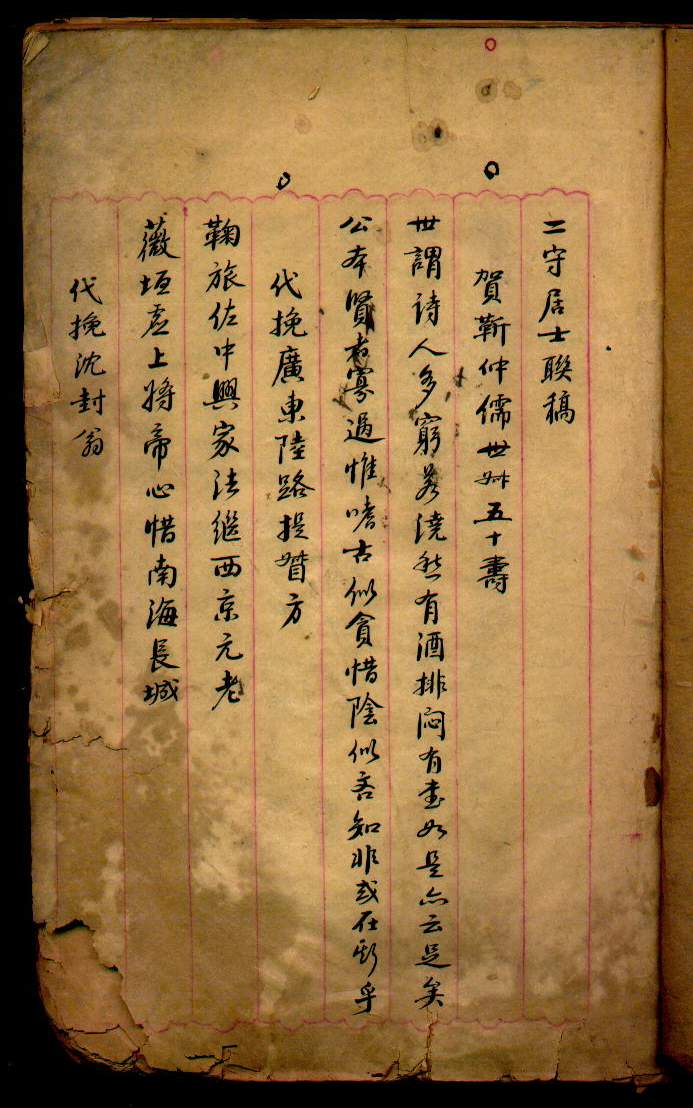 二守居士聯稿
賀靳仲儒世叔五十壽
世謂詩人多窮若澆愁有酒排悶有書如是亦云足矣
公本賢者寡過惟嗜古似貪惜陰似吝知非或在斯乎
代挽廣東陸路提督方
鞠旅佐中興家法繼西京元老
薇垣虛上將帝心惜南海長城
代挽沈封翁